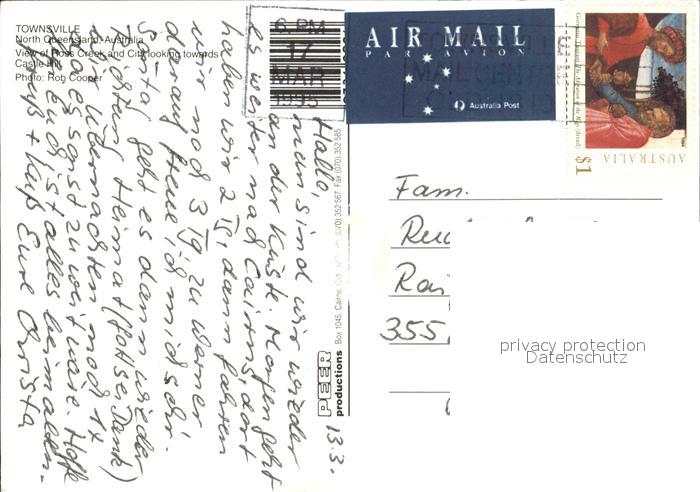 TOWNSVILLE
North Queensland, Australia
View of Ross Creek and City looking towards
Castle Hill
Photo: Rob Cooper
6 PM
17
MAR
1995
AIR MAIL
PAR AVION
Australia Post
AUSTRALIA
$1
PEER
productions
Box 1045, Cairns
(070) 352 567 Fax (070) 352 585
13.3.
Hallo,
nun sind wir wieder
an der Küste. Morgen geht
es weiter nach Cairns, dort
haben wir 2 Tg., dann fahren
wir noch 3 Tg. zu Werner
darauf freue ich mich sehr.
Samstag geht es dann wieder
Richtung Heimat (Gott sei Dank)
Übernachten noch 1x
da es sonst zu weit wäre. Hoffe
Euch ist alles beim alten.
Gruß + Kuß Eure Christa
Fam.
355
privacy protection
Datenschutz